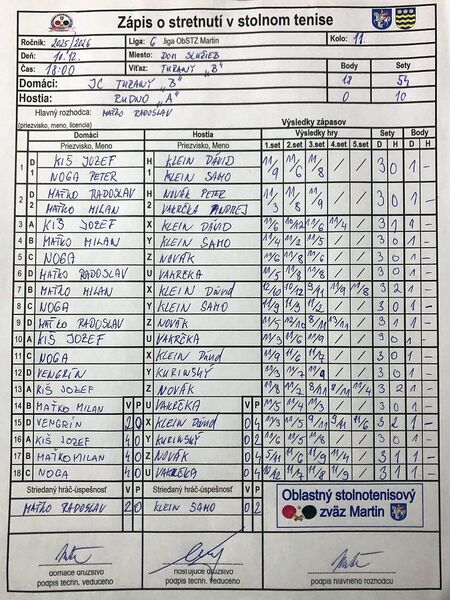 Zápis o stretnutí v stolnom tenise
Ročník: 2025/2026 Liga: 6 .liga ObSTZ Martin Kolo: 11.
Deň: 10.12. Miesto: DOM SLUŽIEB
Čas: 18:00 Víťaz: TURANY "B" Body Sety
Domáci: JC TURANY "B" 18 54
Hostia: RUDNO "A" 0 10
Hlavný rozhodca: MAŤKO RADOSLAV
(priezvisko, meno, licencia) Výsledky zápasov
Domáci Hostia Výsledky hry Sety Body
Priezvisko, Meno Priezvisko, Meno 1.set 2.set 3.set 4.set 5.set D H D H
1 D1 KIŠ JOZEF H1 KLEIN DÁVID 11/9 11/6 11/8 / / 3 0 1 -
NOGA PETER KLEIN SAMO
2 D2 MAŤKO RADOSLAV H2 NOVÁK PETER 11/3 11/8 11/9 / / 3 0 1 -
MAŤKO MILAN VAKRČKA ANDREJ
3 A KIŠ JOZEF X KLEIN DÁVID 10/12 11/6 11/4 / 3 1 1 -
4 B MAŤKO MILAN Y KLEIN SAMO 11/4 11/2 11/5 / / 3 0 1 -
5 C NOGA Z NOVÁK 11/6 11/8 11/6 / / 3 0 1 -
6 D MAŤKO RADOSLAV U VAKRČKA 11/5 11/8 11/8 / / 3 0 1 -
7 B MAŤKO MILAN X KLEIN Dávid 12/10 10/12 11/9 11/8 3 2 1 -
8 C NOGA Y KLEIN SAMO 11/9 11/3 11/2 / / 3 0 1 -
9 D MAŤKO RADOSLAV Z NOVÁK 11/5 12/10 8/11 13/11 / 3 1 1 -
10 A KIŠ JOZEF U VAKRČKA 11/3 11/6 11/9 / / 3 0 1 -
11 C NOGA X KLEIN Dávid 11/9 11/6 11/7 / / 3 0 1 -
12 D VENGRÍN Y KURIWSKÝ 11/3 11/7 11/9 / / 3 0 1 -
13 A KIŠ JOZEF Z NOVÁK 11/8 8/11 11/4 3 2 1 -
14 B MAŤKO MILAN V P U VAKRČKA V P 11/5 11/4 11/3 / / 3 0 1 -
15 D VENGRÍN 2 0 X KLEIN Dávid 0 4 11/5 11/6 3 2 1 -
16 A KIŠ JOZEF 4 0 Y KURIWSKÝ 0 2 / / 3 0 1 -
17 B MAŤKO MILAN 4 0 Z NOVÁK 0 4 11/5 / 3 1 1 -
18 C NOGA 4 0 U VAKRČKA 0 4 10/12 11/7 11/8 11/9 / 3 1 1 -
Striedaný hráč-úspešnosť V P Striedaný hráč-úspešnosť V P
MAŤKO RADOSLAV 2 0 KLEIN SAMO 0 2
Oblastný stolnotenisový
zväz Martin
domáce družstvo hosťujúce družstvo
podpis techn. vedúceho podpis techn. vedúceho podpis hlavného rozhodcu